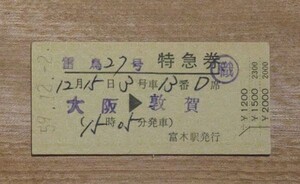 雷鳥27号 特急券
職
12月15日3号車13番D席
大阪▶敦賀
(15時05分発車)
富木駅発行
59.12.-2.
￥1200
￥1500 2300
￥2000 2000